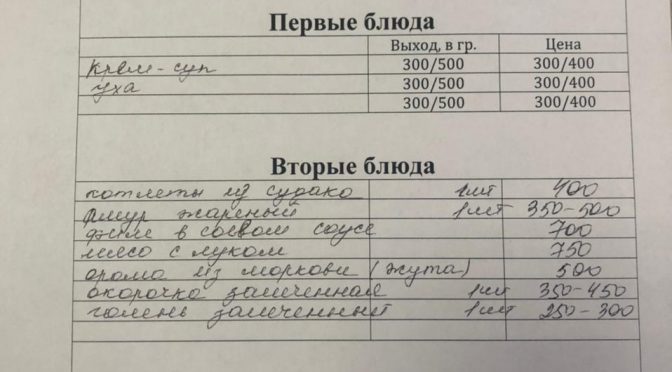 Первые блюда
Выход, в гр. Цена
крем-суп 300/500 300/400
уха 300/500 300/400
300/500 300/400
Вторые блюда
котлеты из судако 1шт 400
жареный 1шт 350-500
филе в соевом соусе 700
мясо с луком 750
арома из моркови (жута) 500
окорочка запеченная 1шт 350-450
голень запеченный 1шт 250-300